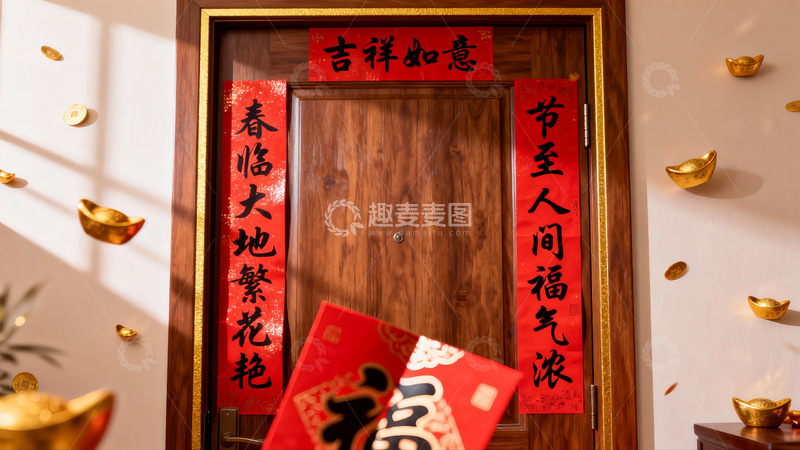 吉祥如意
春临大地繁花艳
节至人间福气浓
福
趣麦麦图